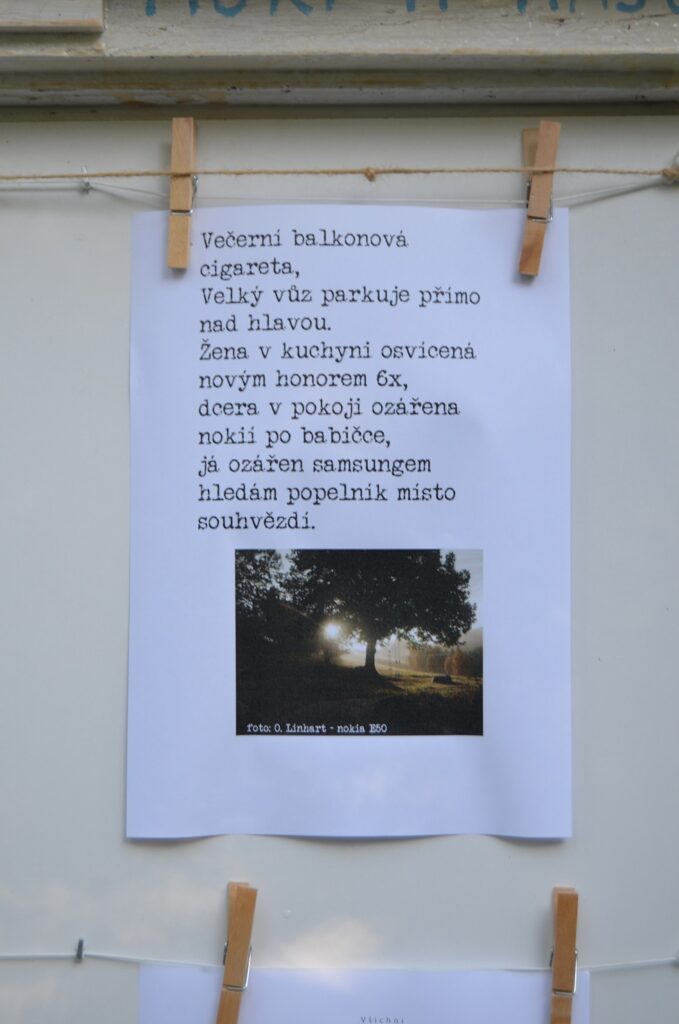 Večerní balkonová
cigareta,
Velký vůz parkuje přímo
nad hlavou.
Žena v kuchyni osvícená
novým honorem 6x,
dcera v pokoji ozářena
nokií po babičce,
já ozářen samsungem
hledám popelník místo
souhvězdí.
foto: O. Linhart - nokia E50
Všichni